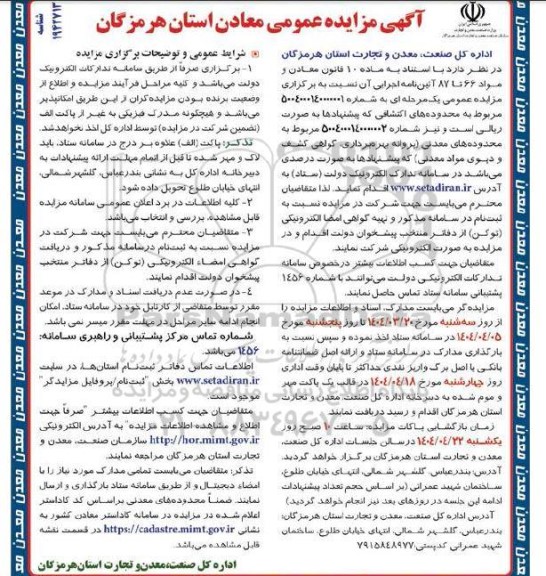 آگهی مزایده عمومی معادن استان هرمزگان
شناسه ۱۹۴۲۷۱۳
اداره کل صنعت، معدن و تجارت استان هرمزگان
در نظر دارد با استناد به ماده ۱۰ قانون معادن و
مواد ۶۶ تا ۸۷ آئین‌نامه اجرایی آن نسبت به برگزاری
مزایده عمومی یک‌مرحله ای به شماره
مربوط به محدوده‌های اکتشافی که پیشنهادها به صورت
ریالی است و نیز شماره مربوط به
محدوده‌های معدنی (پروانه بهره‌برداری، گواهی کشف
و دپوی مواد معدنی) که پیشنهادها به صورت درصدی
می‌باشد در سامانه تدارک الکترونیک دولت (ستاد) به
آدرس www.setadiran.ir اقدام نماید. لذا متقاضیان
محترم می‌بایست جهت شرکت در مزایده نسبت به
ثبت‌نام در سامانه مذکور و تهیه گواهی امضا الکترونیکی
(توکن) از دفاتر منتخب پیشخوان دولت اقدام و در
مزایده به صورت الکترونیکی شرکت نمایند.
متقاضیان جهت کسب اطلاعات بیشتر درخصوص سامانه
تدارکات الکترونیکی دولت می‌توانند با شماره ۱۴۵۶
پشتیبانی سامانه ستاد تماس حاصل نمایند.
مزایده گر می‌بایست مدارک، اسناد و اطلاعات مزایده را
از روز سه‌شنبه مورخ ۱۴۰۴/۰۳/۲۰ تا روز پنجشنبه مورخ
۱۴۰۴/۰۴/۰۵ در سامانه ستاد اخذ نموده و سپس نسبت به
بارگذاری مدارک در سامانه ستاد و ارائه اصل ضمانتنامه
بانکی یا اصل برگ واریز نقدی حداکثر تا پایان وقت اداری
روز چهارشنبه مورخ ۱۴۰۴/۰۴/۱۸ در قالب یک پاکت مهر
و موم شده به دبیرخانه اداره کل صنعت، معدن و تجارت
استان هرمزگان اقدام و رسید دریافت نمایند.
زمان بازگشایی پاکات مزایده ساعت ۱۰ صبح روز
یکشنبه ۱۴۰۴/۰۴/۲۲ در سالن جلسات اداره کل صنعت،
معدن و تجارت استان هرمزگان برگزار خواهد گردید.
آدرس: بندرعباس، گلشهر شمالی، انتهای خیابان طلوع،
ساختمان شهید عمرانی (بر اساس حجم تعداد پیشنهادات
ادامه این جلسه در روزهای بعد نیز انجام خواهد گردید)
آدرس اداره کل صنعت، معدن و تجارت استان هرمزگان:
بندرعباس، گلشهر شمالی، انتهای خیابان طلوع، ساختمان
شهید عمرانی کدپستی: ۷۹۱۵۸۴۸۹۷۷
شرایط عمومی و توضیحات برگزاری مزایده
۱- برگزاری صرفاً از طریق سامانه تدارکات الکترونیک
دولت می‌باشد و کلیه مراحل فرآیند مزایده و اطلاع از
وضعیت برنده بودن مزایده‌گران از این طریق امکانپذیر
می‌باشد و هیچگونه مدرک فیزیکی به غیر از پاکت الف
(تضمین شرکت در مزایده) توسط اداره کل اخذ نخواهد شد.
تذکر: پاکت (الف) علاوه بر درج در سامانه ستاد، باید
لاک و مهر شده تا قبل از اتمام مهلت ارائه پیشنهادات به
دبیرخانه اداره کل به نشانی بندرعباس، گلشهر شمالی،
انتهای خیابان طلوع تحویل داده شود.
۲- کلیه اطلاعات در برد اعلان عمومی سامانه مزایده
قابل مشاهده، بررسی و انتخاب می‌باشد.
۳- متقاضیان محترم می‌بایست جهت شرکت در
مزایده نسبت به ثبت‌نام در سامانه مذکور و دریافت
گواهی امضاء الکترونیکی (توکن) از دفاتر منتخب
پیشخوان دولت اقدام نمایند.
۴- در صورت عدم دریافت اسناد و مدارک در موعد
مقرر توسط متقاضی از کارتابل خود در سامانه ستاد، امکان
انجام ادامه سایر مراحل در مهلت مقرر میسر نمی باشد.
شماره تماس مرکز پشتیبانی و راهبری سامانه:
۱۴۵۶ می‌باشد.
اطلاعات تماس دفاتر ثبت‌نام استان‌ها، در سایت
www.setadiran.ir بخش "ثبت‌نام/پروفایل مزایدگر"
موجود است.
متقاضیان جهت کسب اطلاعات بیشتر "صرفاً جهت
اطلاع و مشاهده اطلاعات مزایده" به آدرس الکترونیکی
http://hor.mimt.gov.ir سازمان صنعت، معدن و
تجارت استان هرمزگان مراجعه نمایند.
تذکر: متقاضیان می‌بایست تمامی مدارک مورد نیاز را با
امضاء دیجیتال و از طریق سامانه ستاد بارگذاری و ارسال
نمایند. ضمناً محدوده‌های معدنی براساس کد کاداستر
اعلام شده در مزایده در سامانه کاداستر معادن کشور به
نشانی https://cadastre.mimt.gov.ir در قسمت نقشه
قابل مشاهده می‌باشد.
اداره کل صنعت، معدن و تجارت استان هرمزگان